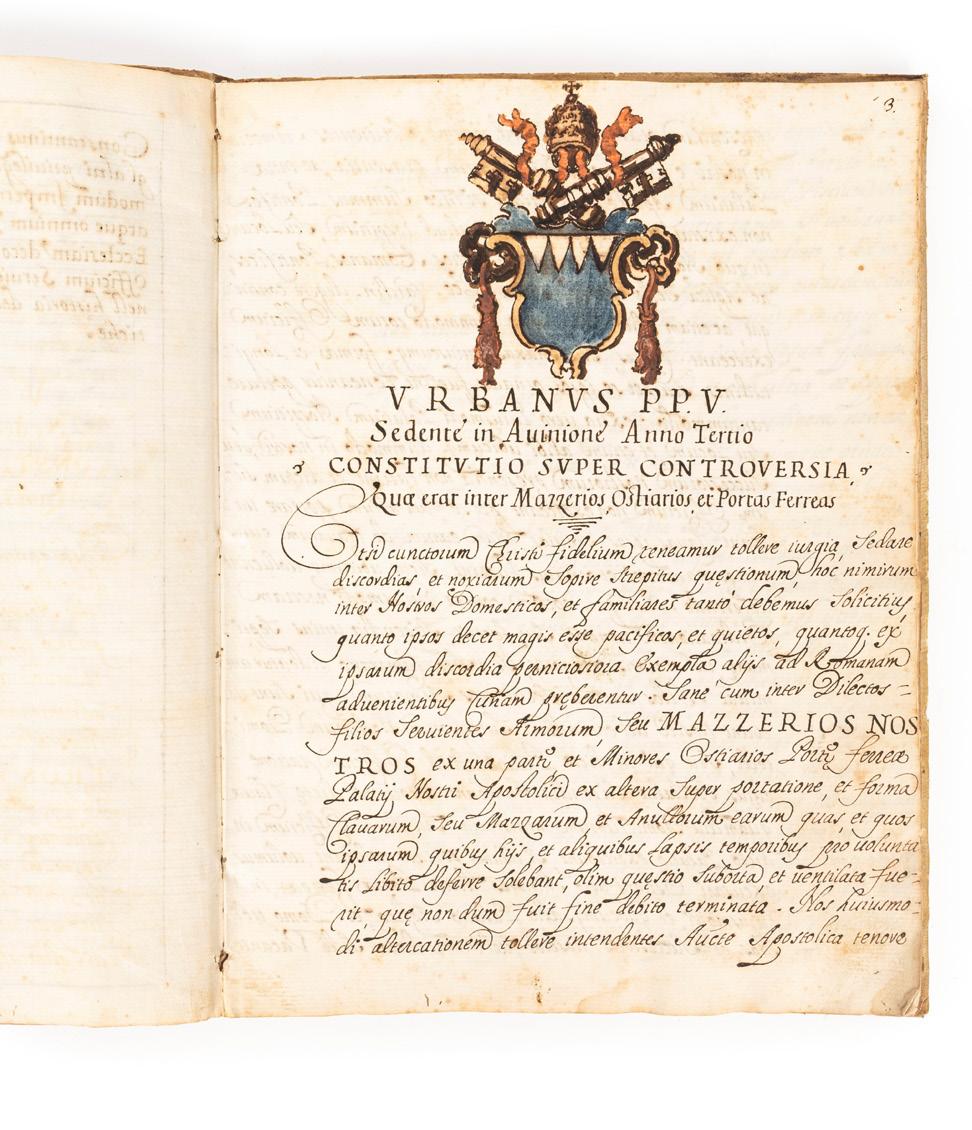 3.
VRBANVS PP. V.
Sedente in Auinione Anno Tertio
CONSTITVTIO SVPER CONTROVERSIA,
Quæ erat inter Mazzerios, Ostiarios, et Portas Ferreas
Etsi cunctorum Christi fidelium teneamur tollere iurgia, Sedare
discordias, et noxiarum Sopire Strepitus quęstionum, hoc nimirum
inter Nostros Domesticos, et familiares tantò debemus Solicitius,
quanto ipsos decet magis esse pacificos, et quietos, quantoq. ex
ipsarum discordia perniciosiora Exempla alijs ad Romanam
aduenientibus Curiam pręberentur. Sanè cum inter Dilectos-
filios Seruientes Armorum, Seu MAZZERIOS NOS
TROS ex una parte et Minores Ostiarios Portę ferreæ
Palatij Nostri Apostolici ex altera Super portatione, et forma
Clauarum, Seu Mazzarum, et Anullorum earum quas, et quos
ipsarum quibus hijs, et aliquibus Lapsis temporibus pro uolunta
tis Libito deferre Solebant, olim quęstio Suborta, et uentilata fue-
rit, quę non dum fuit fine debito terminata. Nos huiusmo-
di altercationem tollere intendentes Aucte Apostolica tenore
Constantinus
modum Imper
atque omnium
Ecclesiarum deco
Officium Serui
nell historia de
tiche.